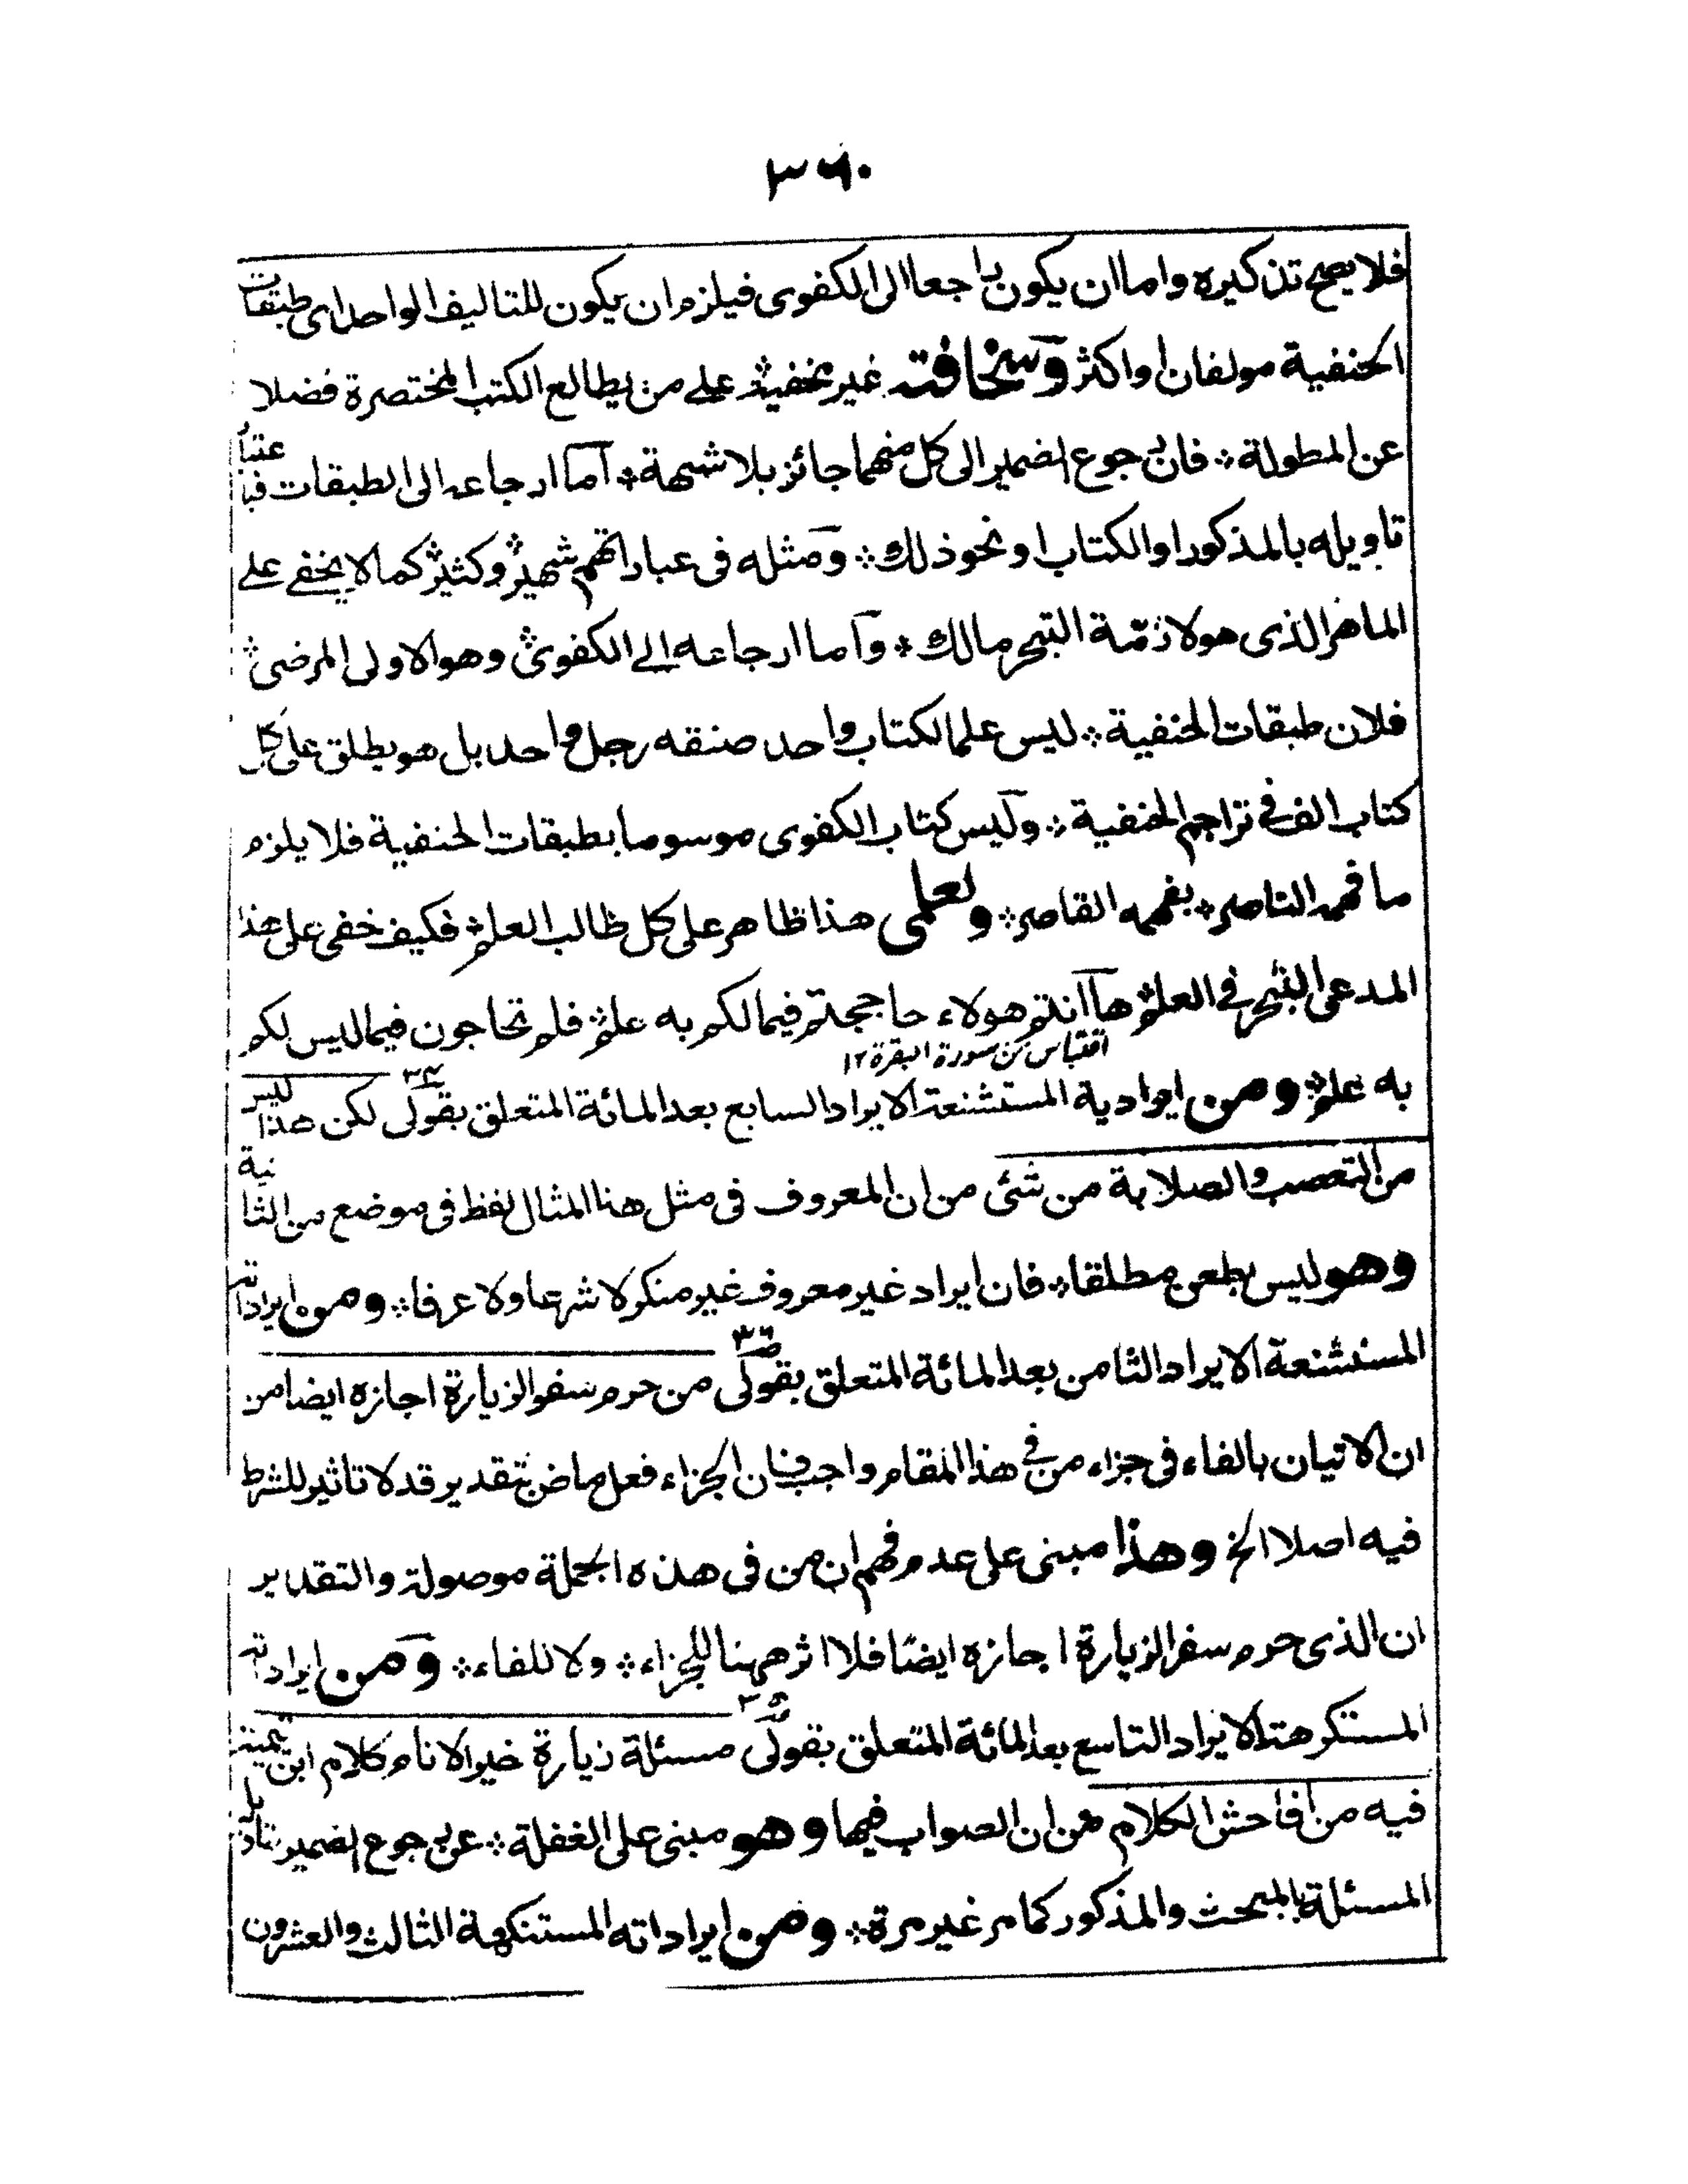 ٣٦٠
فلا يصح تذكيره واما ان يكون راجعا الى الكفوى فيلزم ان يكون للتاليف الواحد اى طبقات
الحنفية مولفان او اكثر وسخافته غير مخفية على من يطالع الكتب المختصرة فضلا
عن المطولة فان رجوع الضمير الى كل منهما جائز بلا شبهة اما ارجاعه الى الطبقات فباعتبار
تاويله بالمذكور او الكتاب او نحو ذلك ومثله فى عباراتهم شهير وكثير كما لا يخفى على
الماهر الذى هو لازمة التبحر مالك واما ارجاعه الى الكفوى وهو الاولى المرضى
فلان طبقات الحنفية ليس علما لكتاب واحد صنفه رجل واحد بل هو يطلق على كل
كتاب الف فى تراجم الحنفية وليس كتاب الكفوى موسوما بطبقات الحنفية فلا يلزم
ما فهمه الناصر بفهمه القاصر ولعلمى هذا ظاهر على كل طالب العلم فكيف خفى على هذا
المدعى التبحر فى العلم هآ انتم هولاء حاججتم فيما لكم به علم فلم تحاجون فيما ليس لكم
اقتباس من سورة البقرة ١٢
به علم ومن ايرادية المستشنعة الايراد السابع بعد المائة المتعلق بقولى لكن هذا ليس
من التعصب والصلابة من شئ من ان المعروف فى مثل هذا المثال لفظ فى موضع من الثانية
وهو ليس بطعن مطلقا فان ايراد غير معروف غير منكر لا شرعا ولا عرفا ومن ايراداته
المستشنعة الايراد الثامن بعد المائة المتعلق بقولى من حرم سفر الزيارة اجازه ايضا من
ان الاتيان بالفاء فى جزاء من فى هذا المقام واجب فان الجزاء فعل ماض بتقدير قد لا تاثير للشرط
فيه اصلا الخ وهذا مبنى على عدم فهم ان من فى هذه الجملة موصولة والتقدير
ان الذى حرم سفر الزيارة اجازه ايضا فلا اثر ههنا للجزاء ولا للفاء ومن ايراداته
المستكرهة الايراد التاسع بعد المائة المتعلق بقولى مسئلة زيارة خير الانام كلام ابن تيمية
فيه من افاحش الكلام من ان الصواب فيها وهو مبنى على الغفلة عن رجوع الضمير بتاويل
المسئلة بالمبحث والمذكور كما مر غير مرة ومن ايراداته المستنكهة الثالث والعشرون